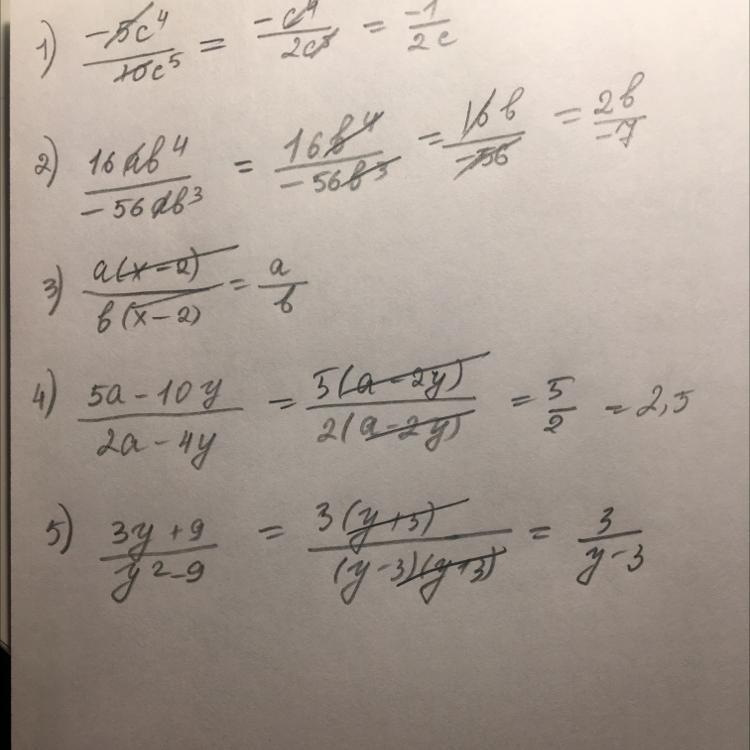 1) -5c⁴/10c⁵ = -c⁴/2c⁵ = -1/2c
2) 16ab⁴/-56ab³ = 16b⁴/-56b³ = 16b/-56 = 2b/-7
3) a(x-2)/b(x-2) = a/b
4) 5a-10y/2a-4y = 5(a-2y)/2(a-2y) = 5/2 = 2,5
5) 3y+9/y²-9 = 3(y+3)/(y-3)(y+3) = 3/y-3